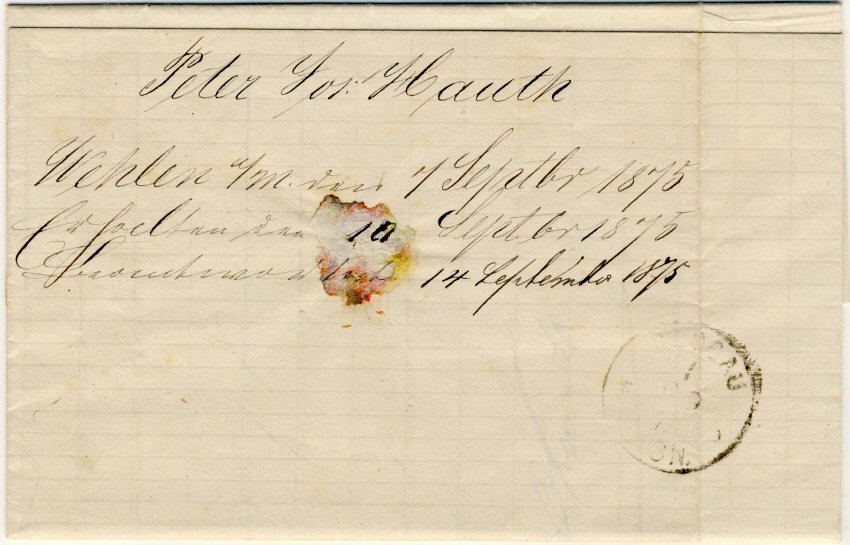 Peter Jos: Hauth
Wehlen a/m. den 7 Septbr 1875
Erhalten den 10 Septbr 1875
Beantwortet 14 September 1875